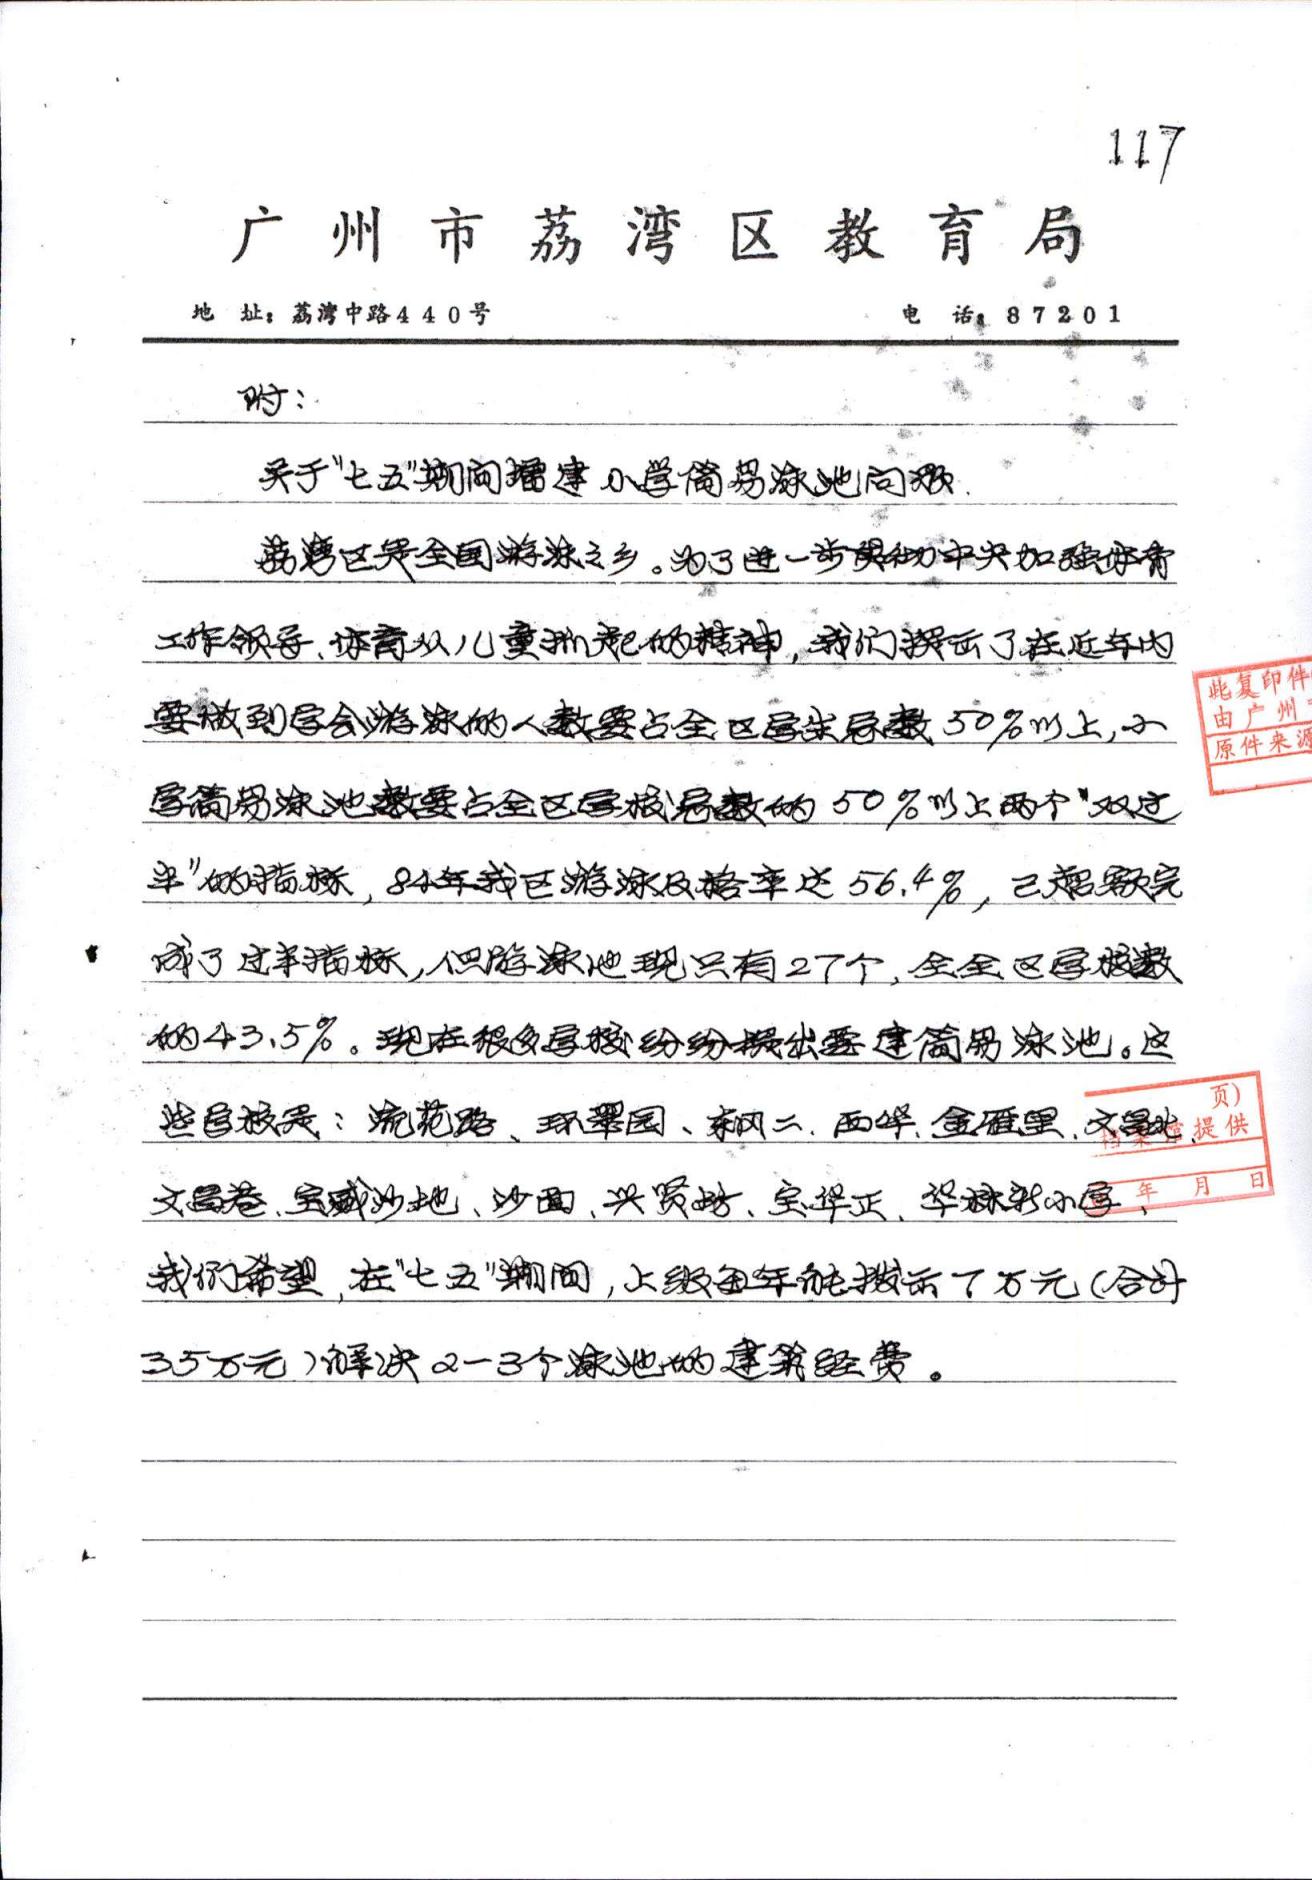 117
广州市荔湾区教育局
地 址：荔湾中路440号 电 话：87201
附：
关于"七五"期间增建小学简易泳池问题.
荔湾区是全国游泳之乡。为了进一步贯彻中央加强体育
工作领导、体育从儿童抓起的精神，我们提出了在近年内
要做到学会游泳的人数要占全区学生总数50%以上，小
学简易泳池数要占全区学校总数的50%以上两个"双过
半"的指标，84年我区游泳及格率达56.4%，已超额完
成了过半指标，但游泳池现只有27个，全区学校数
的43.5%。现在很多学校纷纷提出要建简易泳池。这
些学校是：流花路、环翠园、东风二、西华、金雁里、文昌北、
文昌巷、宝盛沙地、沙面、兴贤坊、宝华正、华林新小学、
我们希望，在"七五"期间，上级每年能拨出7万元（合计
35万元）解决2—3个泳池的建筑经费。
此复印件
由广州
原件来源
页）
档案馆提供
年 月 日